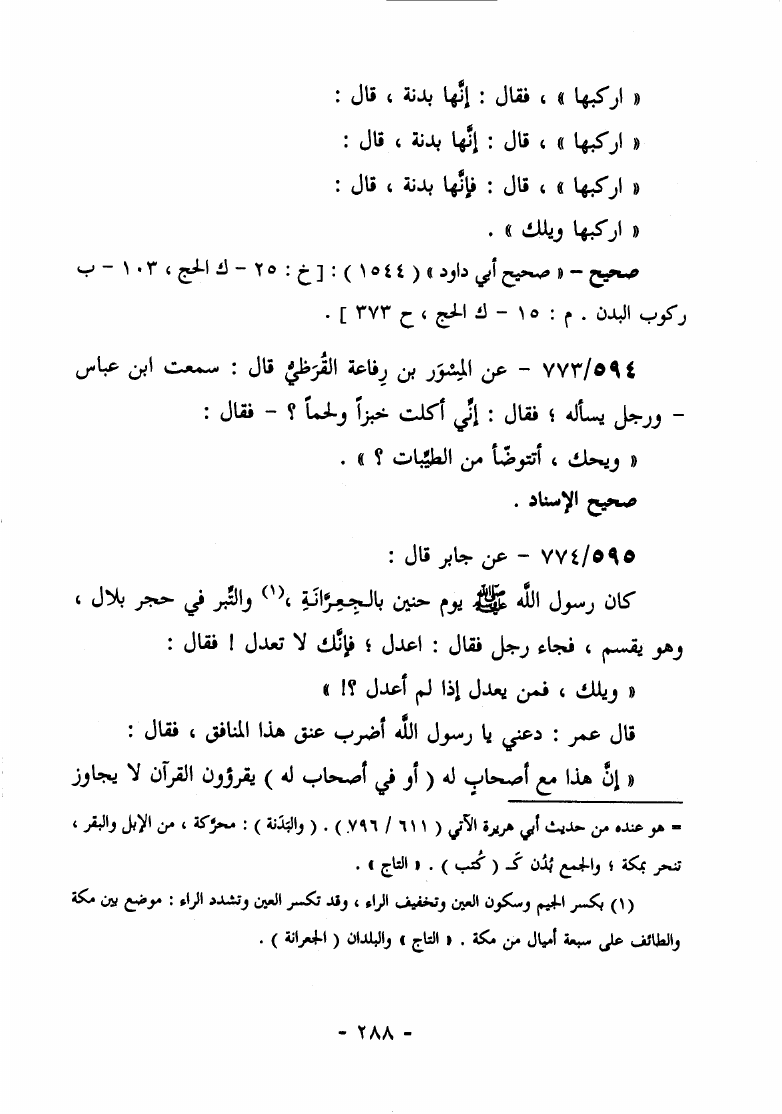 « اركبها » ، فقال : إنَّها بدنة ، قال :
« اركبها » ، قال : إنَّها بدنة ، قال :
« اركبها » ، قال : فإنَّها بدنة ، قال :
« اركبها ويلك » .
صحيح – « صحيح أبي داود » ( ١٥٤٤ ) : [ خ : ٢٥ – ك الحج ، ١٠٣ – ب
ركوب البدن . م : ١٥ – ك الحج ، ح ٣٧٣ ] .
٧٧٣/٥٩٤ – عن المِسْوَر بن رِفاعة القُرَظيُّ قال : سمعت ابن عباس
– ورجل يسأله ؛ فقال : إنِّي أكلت خبزاً ولحماً ؟ – فقال :
« ويحك ، أتتوضَّأ من الطيِّبات ؟ » .
صحيح الإسناد .
٧٧٤/٥٩٥ – عن جابر قال :
كان رسول اللَّه ﷺ يوم حنين بالـجِـعِـرَّانَـةِ ،(١) والتِّبر في حجر بلال ،
وهو يقسم ، فجاء رجل فقال : اعدل ؛ فإنَّك لا تعدل ! فقال :
« ويلك ، فمن يعدل إذا لم أعدل ؟! »
قال عمر : دعني يا رسول اللَّه أضرب عنق هذا المنافق ، فقال :
« إنَّ هذا مع أصحابٍ له ( أو في أصحاب له ) يقرؤون القرآن لا يجاوز
= هو عنده من حديث أبي هريرة الآتي ( ٦١١ / ٧٩٦ ) . ( والبَدَنة ) : محرَّكة ، من الإبل والبقر ،
تنحر بمكة ؛ والجمع بُدُن كَـ ( كُتب ) . « التاج » .
(١) بكسر الجيم وسكون العين وتخفيف الراء ، وقد تكسر العين وتشدد الراء : موضع بين مكة
والطائف على سبعة أميال من مكة . « التاج » والبلدان ( الجعرانة ) .
- ٢٨٨ -